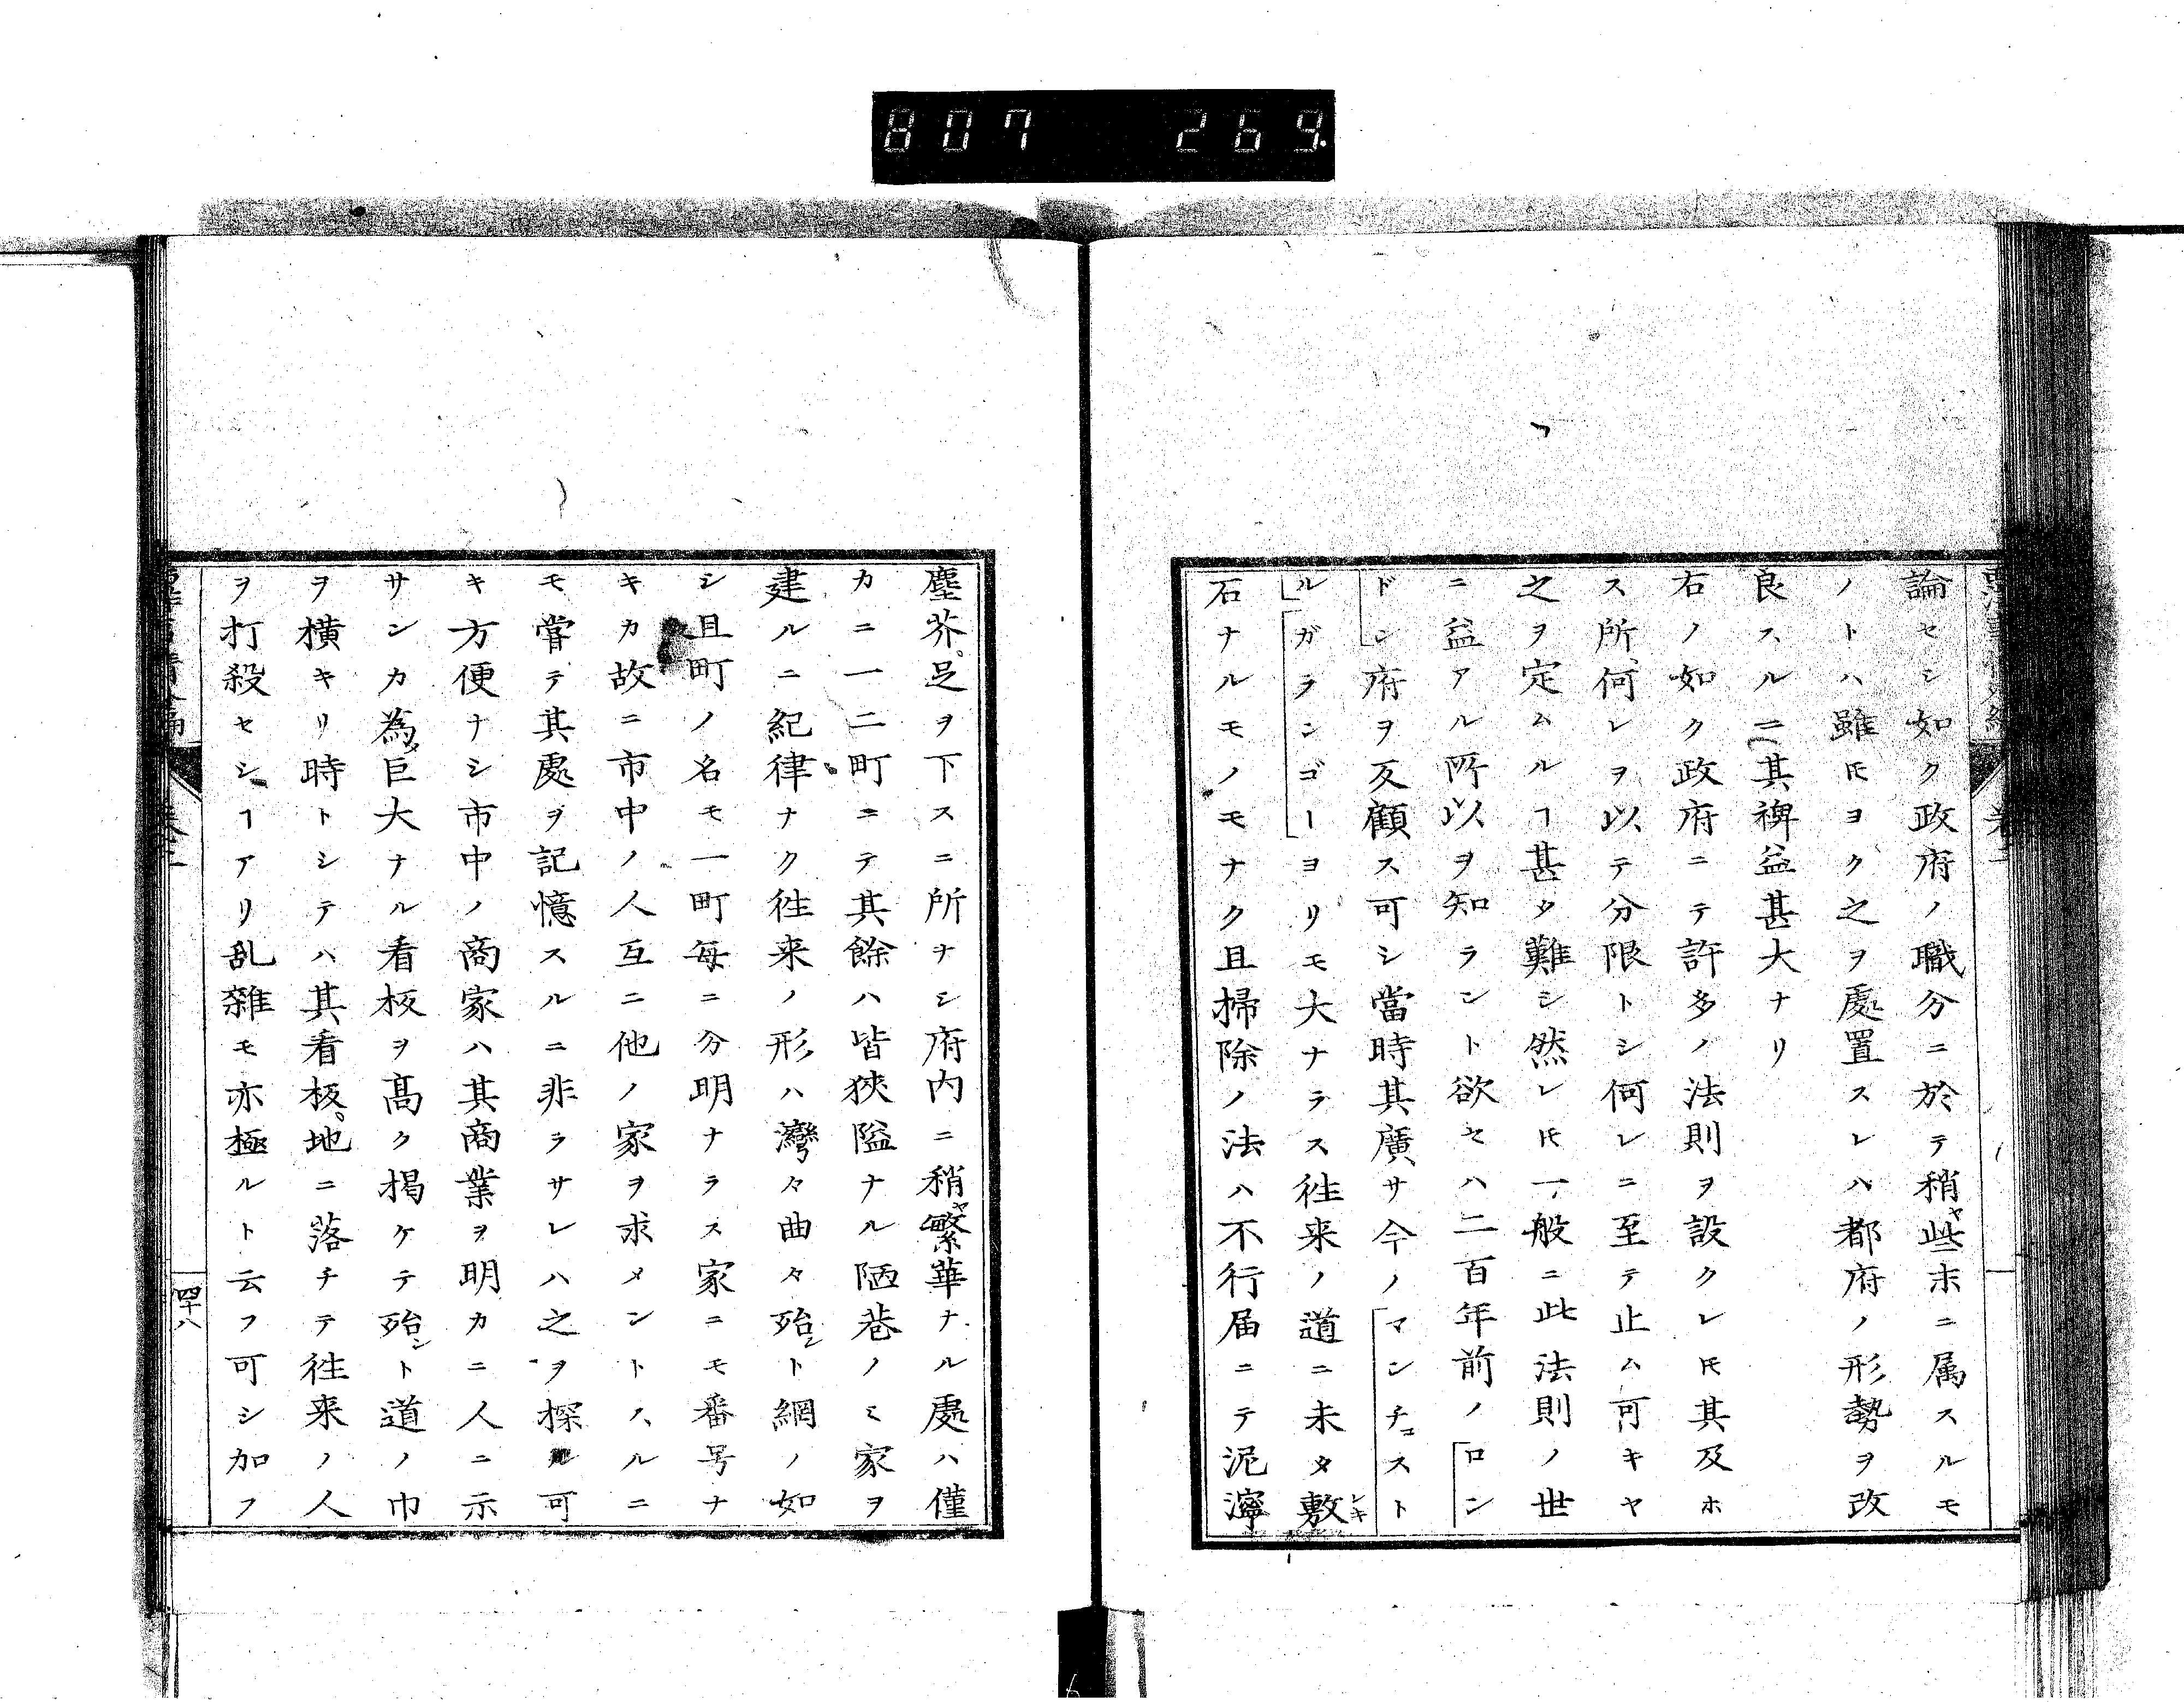 807 269.
論セシ如ク政府ノ職分ニ於テ稍ヤ些ホニ属スルモ
ノトハ雖𪜈ヨク之ヲ處置スレハ都府ノ形勢ヲ改
良スルニ其裨益甚大ナリ
右ノ如ク政府ニテ許多ノ法則ヲ設クレ𪜈其及ホ
ス所何レヲ以テ分限トシ何レニ至テ止ム可キヤ
之ヲ定ムルヿ甚タ難シ然レ𪜈一般ニ此法則ノ世
ニ益アル所以ヲ知ラント欲セハ二百年前ノ「ロン
ドン府ヲ反顧ス可シ當時其廣サ今ノ「マンチェスト
ル」「ガランゴー」ヨリモ大ナラス徃来ノ道ニ未タ敷シキ
石ナルモノモナク且掃除ノ法ハ不行届ニテ泥濘
塵芥足ヲ下スニ所ナシ府内ニ稍ヤ繁華ナル處ハ僅
カニ一二町ニテ其餘ハ皆狹隘ナル陋巷ノミ家ヲ
建ルニ紀律ナク徃来ノ形ハ灣々曲々殆ント網ノ如
シ且町ノ名モ一町毎ニ分明ナラス家ニモ番号ナ
キカ故ニ市中ノ人互ニ他ノ家ヲ求メントスルニ
モ甞テ其處ヲ記憶スルニ非ラサレハ之ヲ探ル可
キ方便ナシ市中ノ商家ハ其商業ヲ明カニ人ニ示
サンカ為巨大ナル看板ヲ髙ク掲ケテ殆ント道ノ巾
ヲ横キリ時トシテハ其看板地ニ落チテ徃来ノ人
ヲ打殺セシヿアリ乱雜モ亦極ルト云フ可シ加フ
四十八